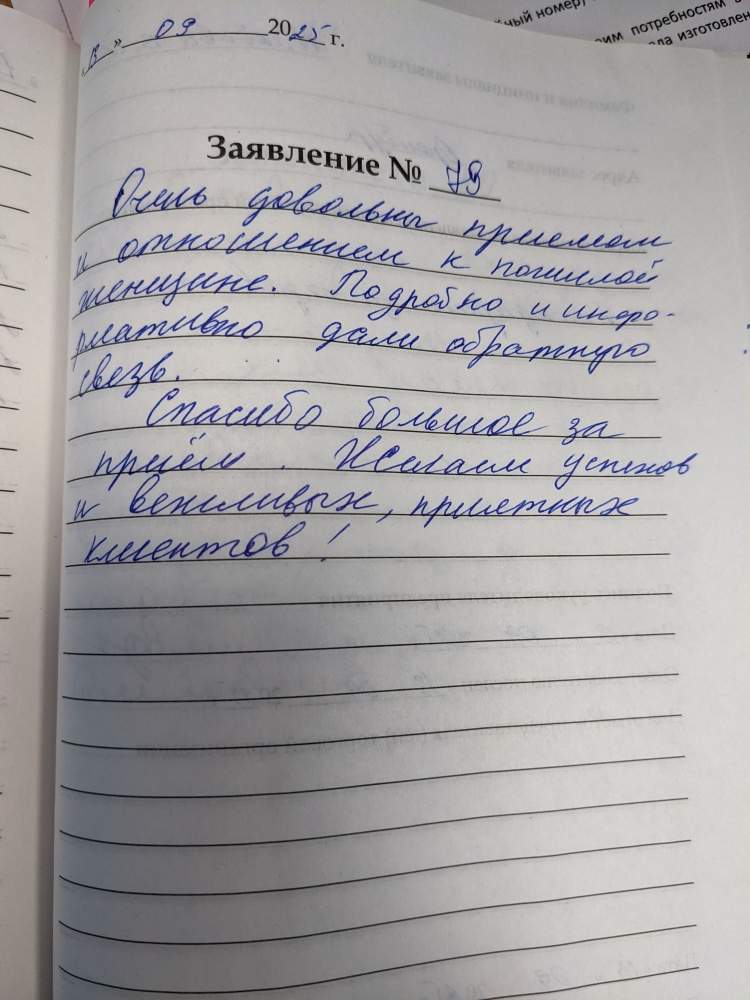 йный номер,
им потребностям
ла изготовлен
» 09 2025 г.
Заявление № 79
Очень довольны приемом
и отношением к пожилой
женщине. Подробно и инфор-
мативно дали обратную
свезь.
Спасибо большое за
приём. Желаем успехов
и вежливых, приятных
клиентов!